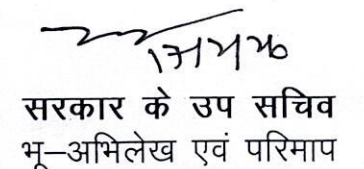 सरकार के उप सचिव
भू–अभिलेख एवं परिमाप